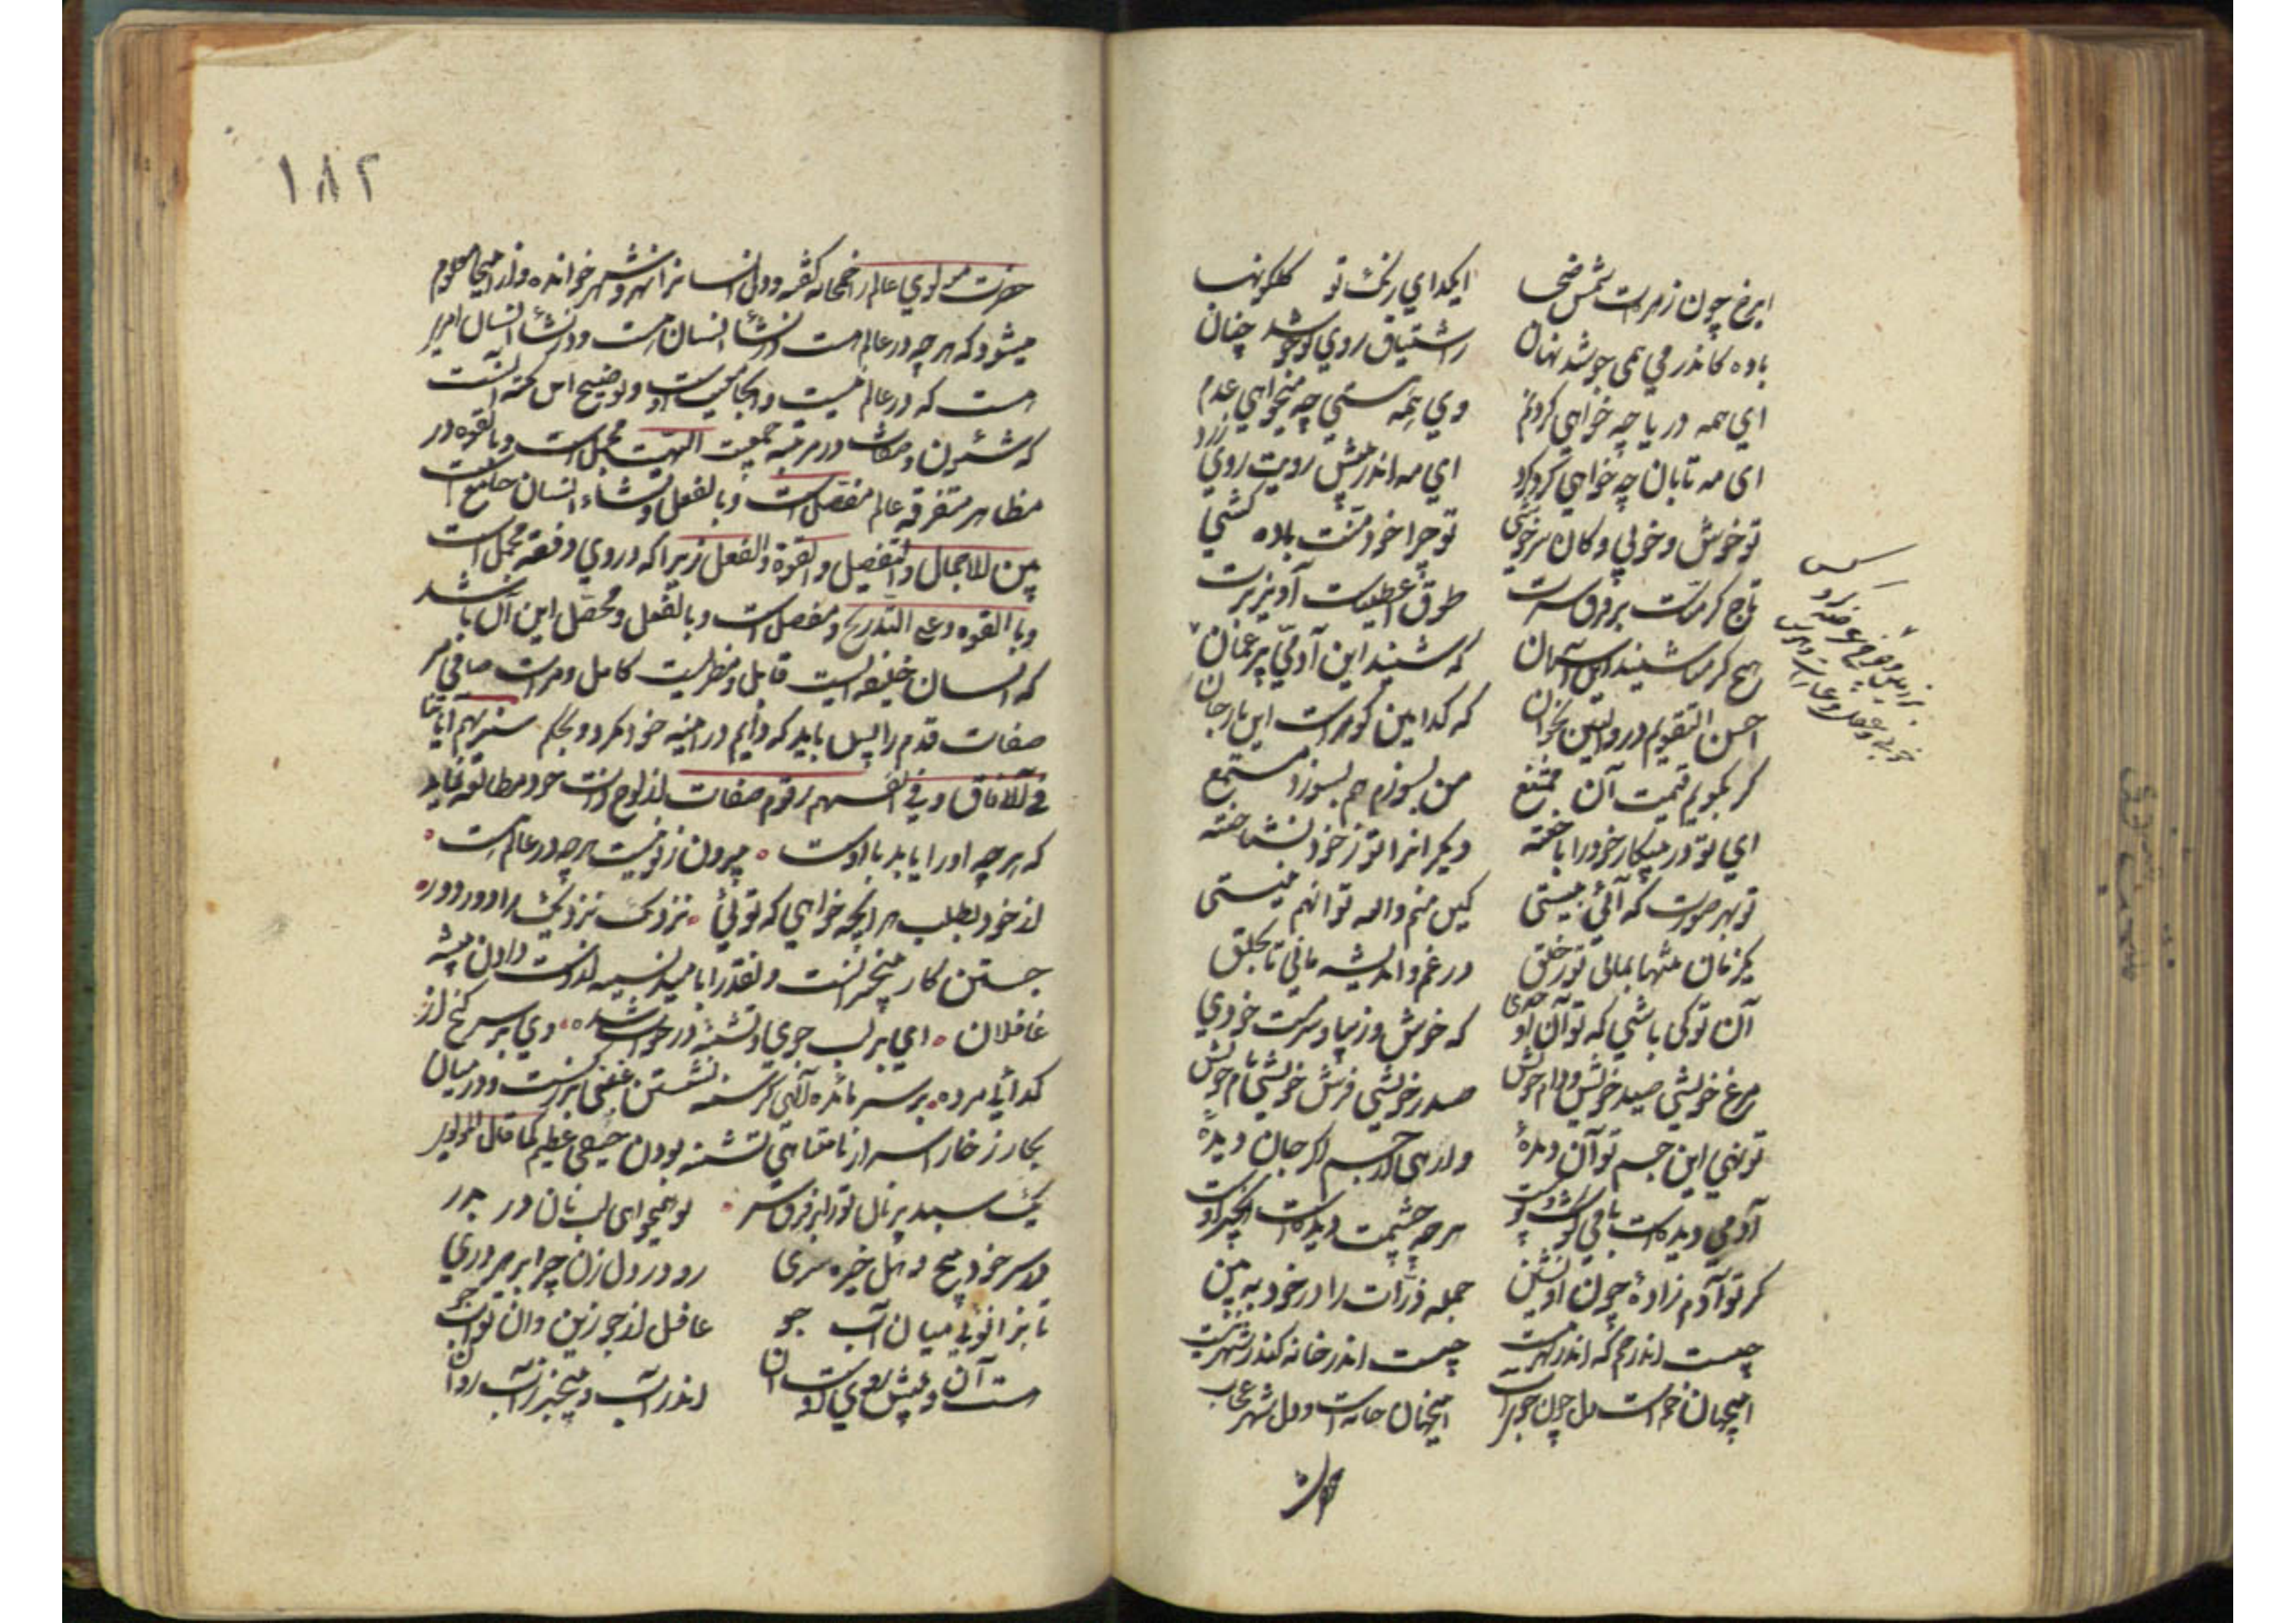 ای رخ چون زهره‌ات شمس ضحی ای گدای رنگ تو گلگونها
باده کاندر می همی جوشد نهان ز اشتیاق روی تو جوشد چنان
ای همه دریا چه خواهی کرد نم وی همه هستی چه میخواهی عدم
ای مه تابان چه خواهی کرد گرد ای مه اندر پیش رویت روی زرد
تو خوش و خوبی و کان هر خوشی تو چرا خود منت باده کشی
تاج کرمناست بر فرق سرت طوق اعطیناک آویز برت
هیچ کرمنا شنید این آسمان که شنید این آدمی پر غمان
احسن التقویم در والتین بخوان که گرامی گوهرست این یار جان
گر بگویم قیمت آن ممتنع من بسوزم هم بسوزد مستمع
ای تو در پیکار خود را باخته دیگرانرا تو ز خود نشناخته
تو بهر صورت که آئی بیستی کین منم والله تو آن نیستی
یکزمان تنها بمانی تو ز خلق در غم و اندیشه مانی تا بحلق
آن تو کی باشی که تو آن اوحدی که خوش و زیبا و سرمست خودی
مرغ خویشی صید خویش و دام خویش صدر خویشی فرش خویشی بام خویش
تو نهٔ این جسم تو آن دیدهٔ وارهی از جسم گر جان دیدهٔ
آدمی دیدست باقی گوشت و پوست هرچه چشمت دیده است آنچیز اوست
گر تو آدم زادهٔ چون او نشین جمله ذرات را در خود ببین
چیست اندر خم که اندر نهر نیست چیست اندر خانه کاندر شهر نیست
اینجهان خم است دل چون جوی آب اینجهان خانه است و دل شهر عجاب
۱۸۲
حضرت مولوی عالم را خمخانه گفته و دل انسانرا نهر و شهر خوانده و از اینجا معلوم
میشود که هر چه در عالم است در نشأ انسان هست و در نشأ انسان امری
هست که در عالم نیست و توضیح این نکته آنست
که شئون و صفات در مرتبه جمعیت الهیت مجمل است و بالقوه و در
مظاهر متفرقه عالم مفصل است و بالفعل و نشاء انسان جامع است
بین الاجمال والتفصیل والقوة والفعل زیرا که در وی دفعة مجمل است
و بالقوه و علی التدریج مفصل است و بالفعل و محصل این آن باشد
که انسان خلیفه ایست قابل و مظهریست کامل و مرآت صافی مر
صفات قدم را پس باید که دایم در آینه خود نگرد و بحکم سنریهم آیاتنا
فی الآفاق و فی انفسهم رقوم صفات از لوح ذات خود مطالعه نماید
که هر چه او را باید با اوست بیرون ز تو نیست هر چه در عالم هست
از خود بطلب هر آنچه خواهی که توئی نزدیک نزدیک را دور دور
جستن کار بیخبرانست و نقد را بامید نسیه از دست دادن پیشه
غافلان ای بر لب جوی و تشنه در خواب شده وی بر سر گنج از
گدائی مرده بر سر مائده الهی گرسنه نشستن غبنی بزرگست و در میان
بحار زخار اسرار نامتناهی تشنه بودن حیفی عظیم کما قال المولوی
یک سبد پر نان تو را بر فرق سر تو همیخواهی لب نان در بدر
در سر خود پیچ و هل خیره سری رو در دل زن چرا بر هر دری
تا بزانوئی میان آب جو غافل از خود زین و آن تو آب جو
هست آب و پیش روی اوست آن اندر آب و بیخبر ز آب روان